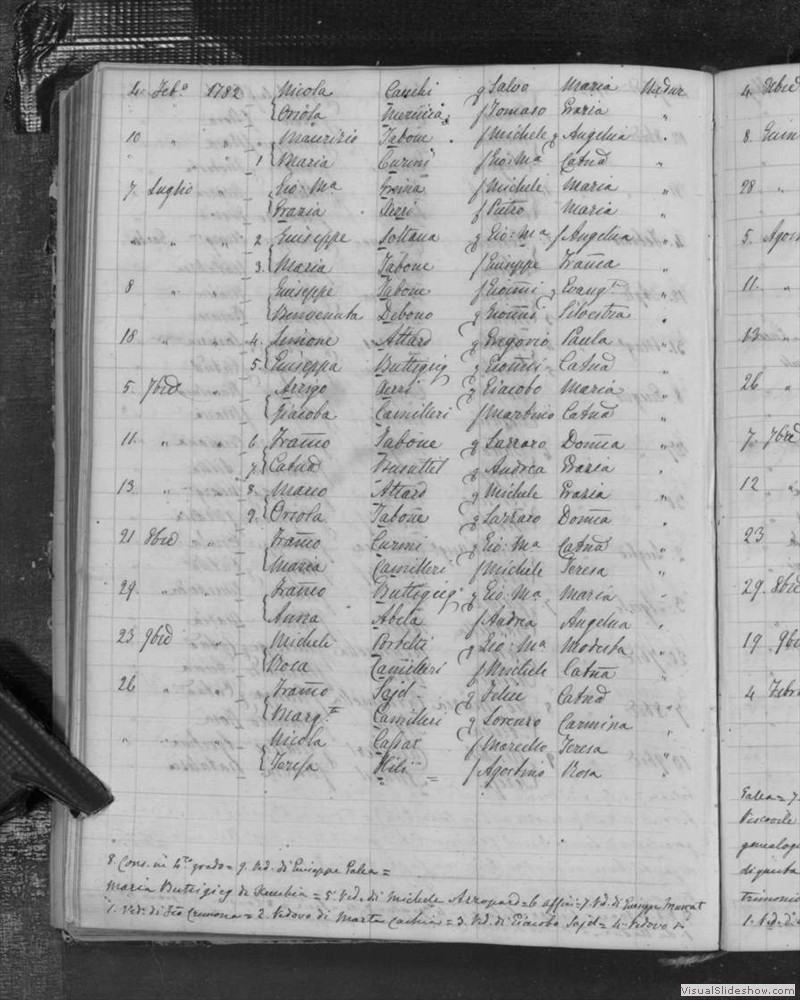 4. Feb.o 1782 Nicola Cauchi q Salvo Maria Nadur
Orsola Mercieca f Tomaso Grazia "
10 " " Maurizio Tabone f Michele q Angelica "
" 1 Maria Curmi f Gio: Ma Catnā "
7. Luglio " Gio: Ma f Michele Maria "
Grazia Azzi f Pietro Maria "
" " " 2 Giuseppe Soltana q Gio: Ma f Angelica "
3. Maria Tabone f Giuseppe Franca "
8 " " Giuseppe Tabone f Giōmi q Evangta "
Benvenuta Debono q Giōmi Silvestra "
18 " " 4. Simone Attard q Gregorio Paula "
5. Giuseppa Buttigieg q Giōmi Catnā "
5. 7bre " Arrigo Azzi q Giacobo Maria "
Giacoba Camilleri f Martino Catnā "
11. " " 6. Franco Tabone q Lazzaro Domca "
7. Catnā q Andrea Grazia "
13. " " 8. Marco Attard q Michele Grazia "
9. Orsola Tabone q Lazzaro Domca "
21 8bre " Franco Curmi q Gio: Ma Catnā "
Maria Camilleri f Michele Teresa "
29. " " Franco Buttigieg q Gio: Ma Maria "
Anna Abela f Andrea Angelica "
23 9bre " Michele Portelli q Gio: Ma Modesta "
Rosa Camilleri f Michele Catnā "
26 " Franco Sajd q Felice Catnā "
Margta Camilleri q Lorenzo Carmina "
" " Nicola Cassar f Marcello Teresa "
Teresa Hili = f Agostino Rosa "
8. Cons. in 4to grado = 9. Ved. di Giuseppe Galea =
Maria Buttigieg di = 5. Ved. di Michele Azzopard = 6 affin = 7. Vd. di Giuseppe Muscat
1. Ved. di Gio Cremona = 2. Vedovo di Marta Cauchi = 3. Vd. di Giacobo Sajd = 4. Vedovo di
4. 8bre
8. Giun
28 "
5. Agos
11. "
13. "
26 "
7. 7bre
12 "
23
29. 8bre
19 9br
4 Febr
Galea = 7.
genealogi
di questa
trimonio
1. Vd. d
VisualSlideshow.com